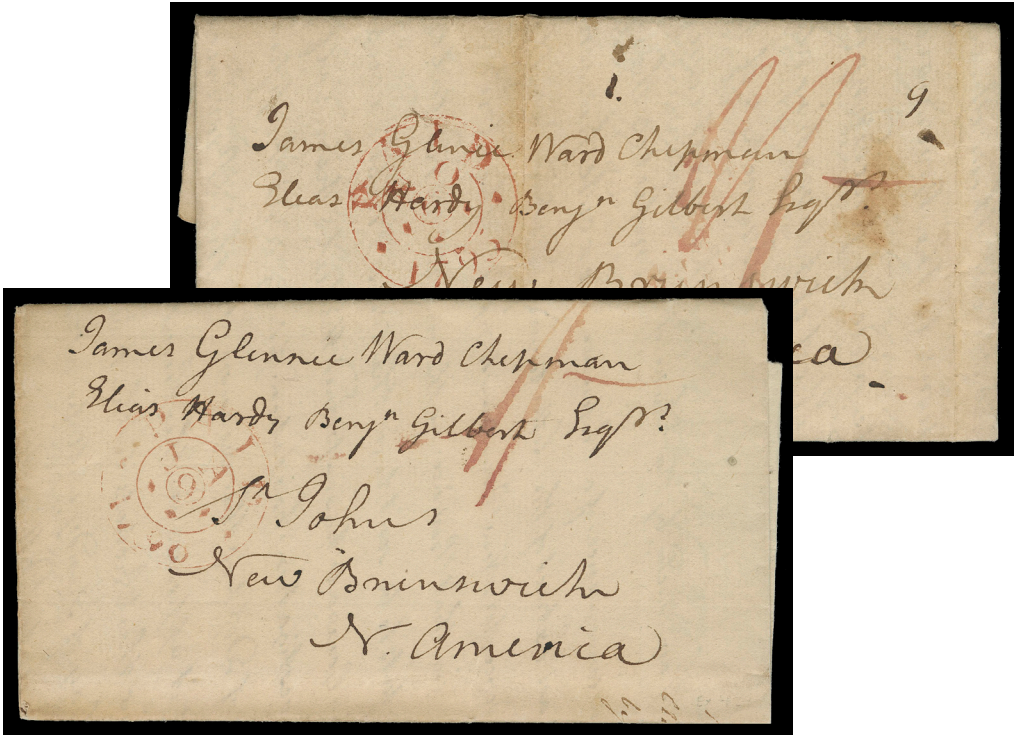 1.
9
James Glenie Ward Chipman
Elias Hardy Benjn Gilbert Esqrs.
New Brunswick
ca
James Glennie Ward Chipman
Elias Hardy Benjn Gilbert Esqrs.
St Johns
New Brunswick
N. America